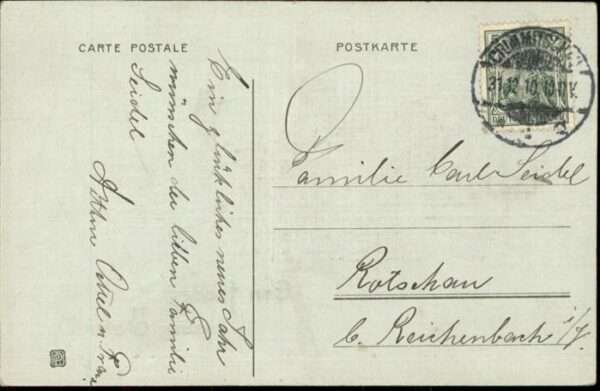 CARTE POSTALE
POSTKARTE
31.12.10.
Ein glückliches neues Jahr
wünschen der lieben Familie
Seidel
Familie Carl Seidel
Rotschau
b. Reichenbach i/V.